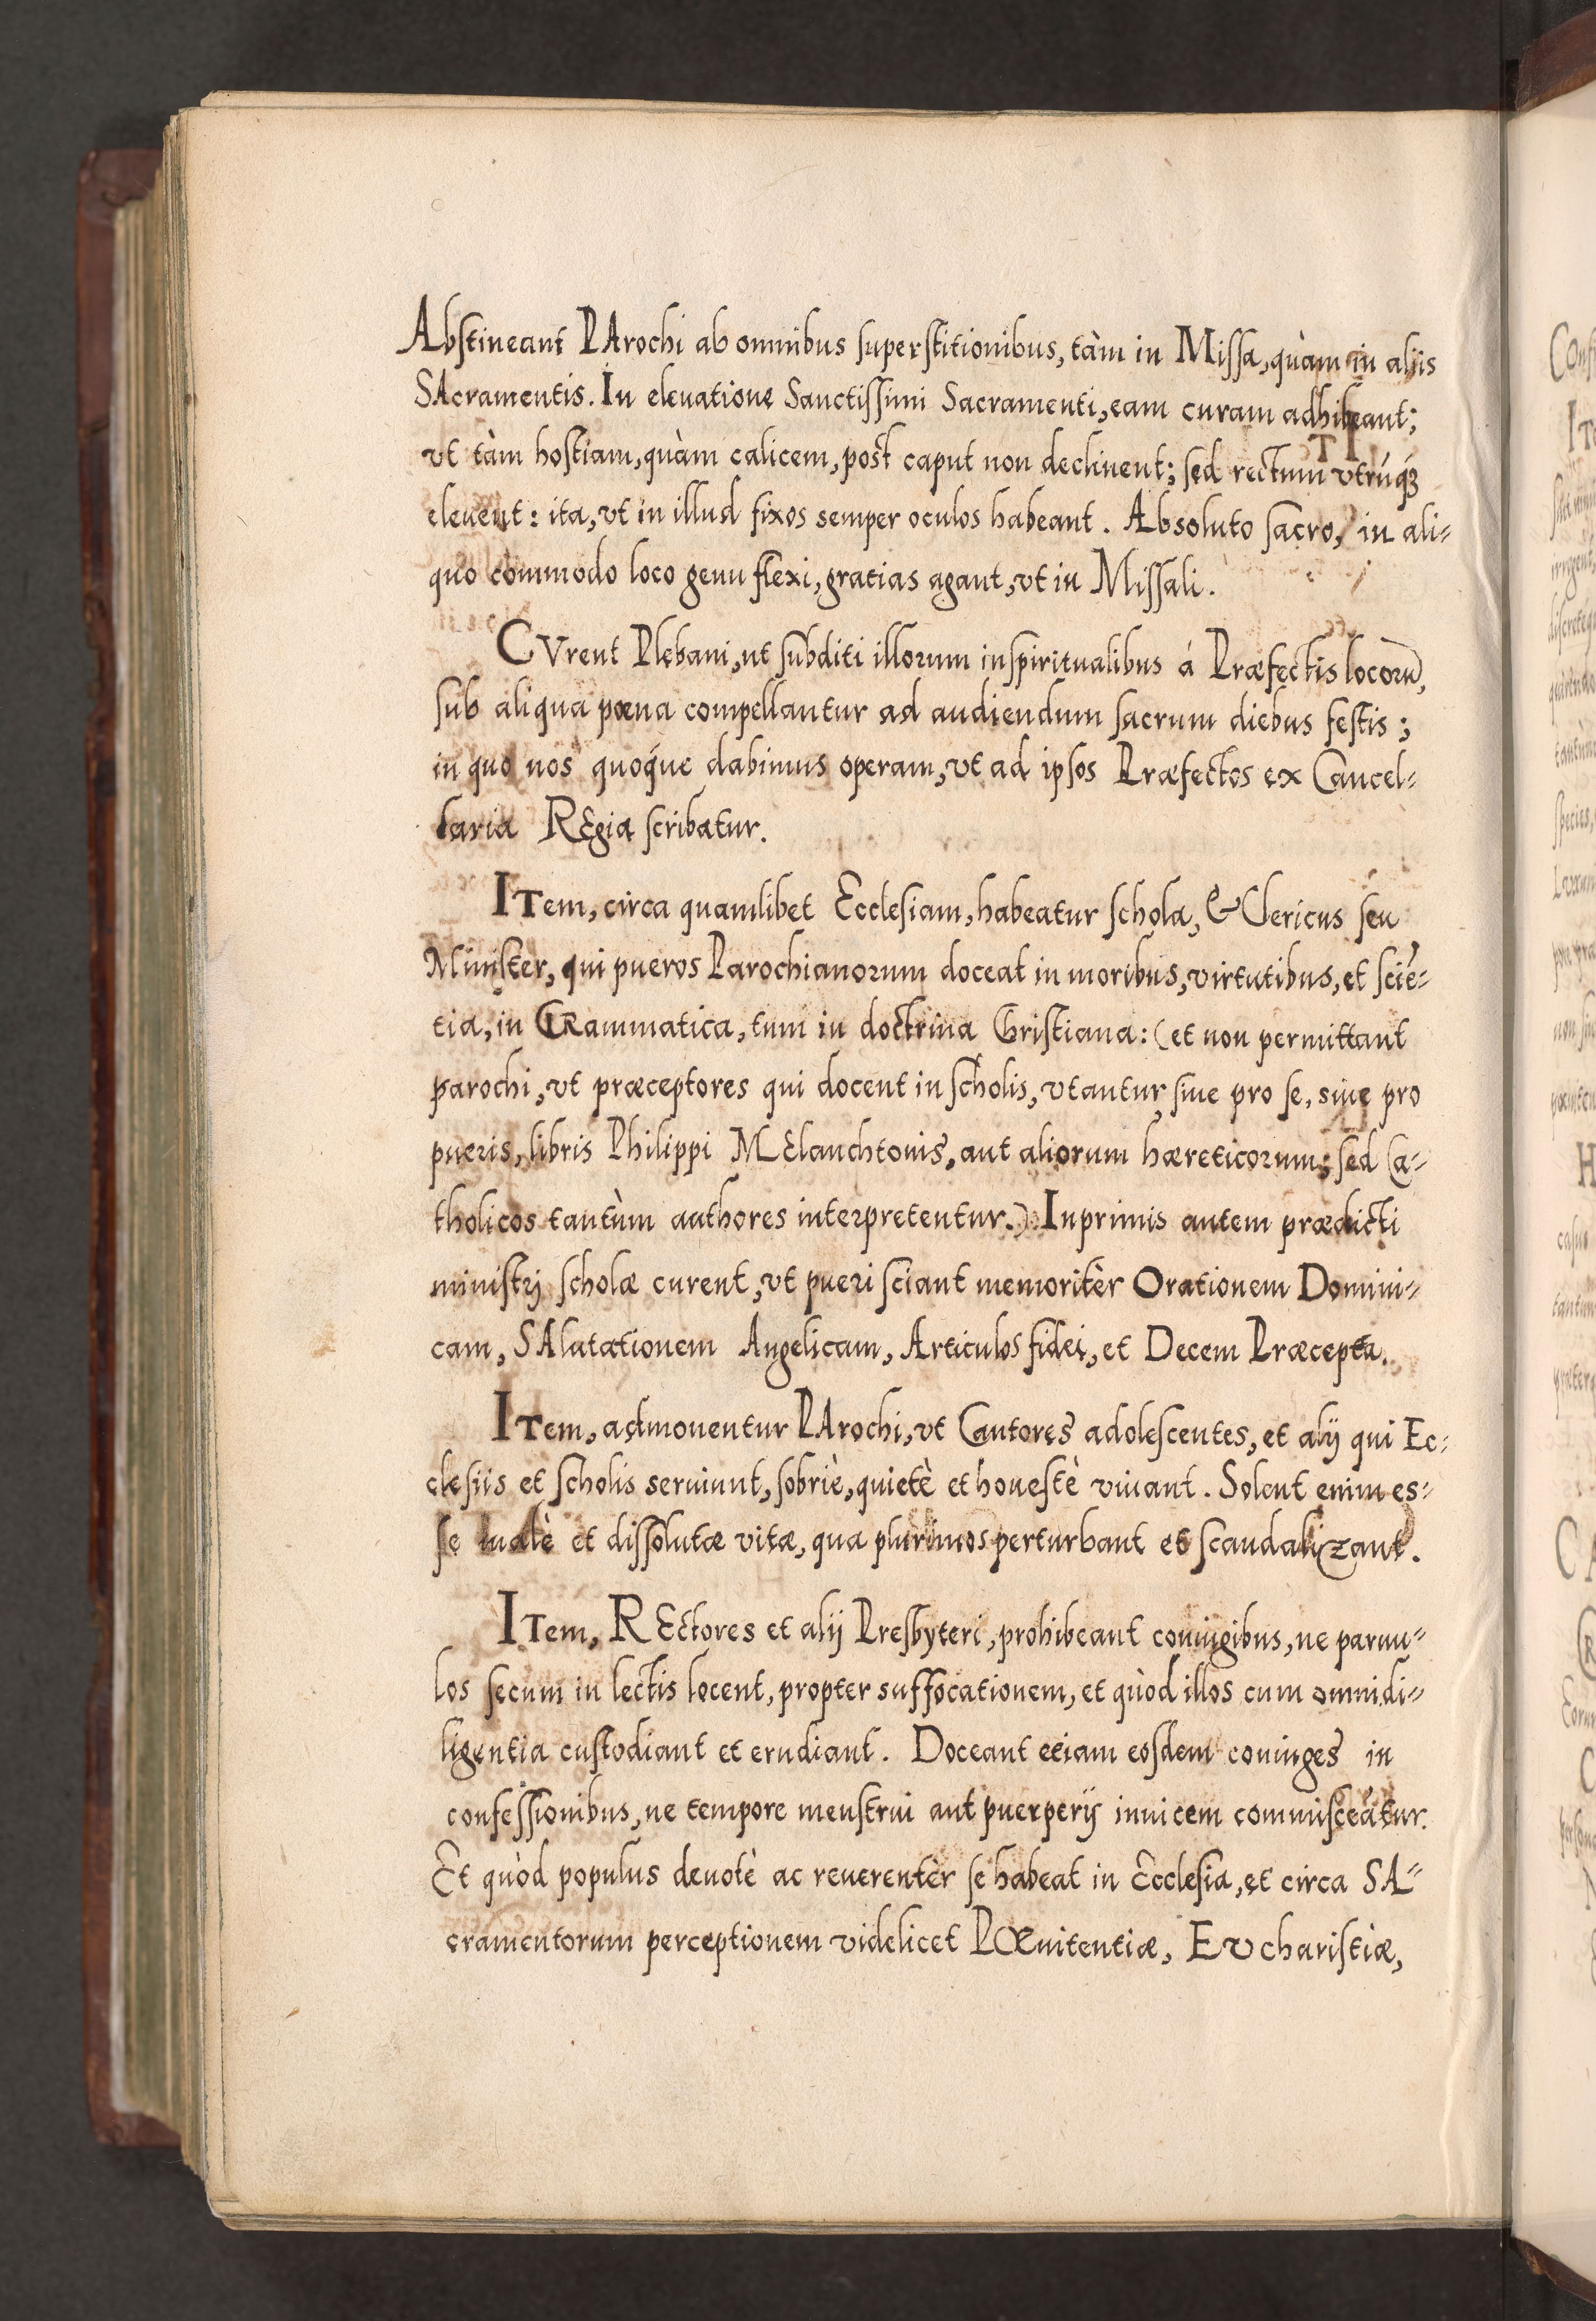 Abstineant PArochi ab omnibus superstitionibus, tàm in Missa, quàm in aliis
SAcramentis. In eleuatione Sanctissimi Sacramenti, eam curam adhibeant;
vt tàm hostiam, quàm calicem, post caput non declinent; sed rectum vtrúq3
eleuent: ita, vt in illud fixos semper oculos habeant. Absoluto sacro, in ali-
quo commodo loco genu flexi, gratias agant, vt in Missali.
CVrent Plebani, ut subditi illorum in spiritualibus á Præfectis locorū,
sub aliqua pœna compellantur ad audiendum sacrum diebus festis;
in quo nos quoq́ue dabimus operam, vt ad ipsos Præfectos ex Cancel-
laria REgia scribatur.
ITem, circa quamlibet Ecclesiam, habeatur schola, & Clericus seu
Minister, qui pueros Parochianorum doceat in moribus, virtutibus, et sciē-
tia, in GRammatica, tum in doctrina Christiana: (et non permittant
parochi, vt præceptores qui docent in scholis, vtantur siue pro se, siue pro
pueris, libris Philippi MElanchtonis, aut aliorum hæreticorum; sed Ca-
tholicos tantùm authores interpretentur.) Inprimis autem prædicti
ministrj scholæ curent, vt pueri sciant memoritèr Orationem Domini-
cam, SAlutationem Angelicam, Articulos fidei, et Decem Præcepta.
ITem, admonentur PArochi, vt Cantores adolescentes, et alij qui Ec-
clesiis et scholis seruiunt, sobriè, quietè et honestè viuant. Solent enim es-
se malè et dissolutæ vitæ, qua plurimos perturbant et scandalizant.
ITem, REctores et alij Presbyteri, prohibeant coniugibus, ne paruu-
los secum in lectis locent, propter suffocationem, et quòd illos cum omni di-
ligentia custodiant et erudiant. Doceant etiam eosdem coniuges in
confessionibus, ne tempore menstrui aut puerperij inuicem commisceātur.
Et quòd populus deuotè ac reuerentèr se habeat in Ecclesia, et circa SA-
cramentorum perceptionem videlicet POEnitentiæ, EVcharistiæ,